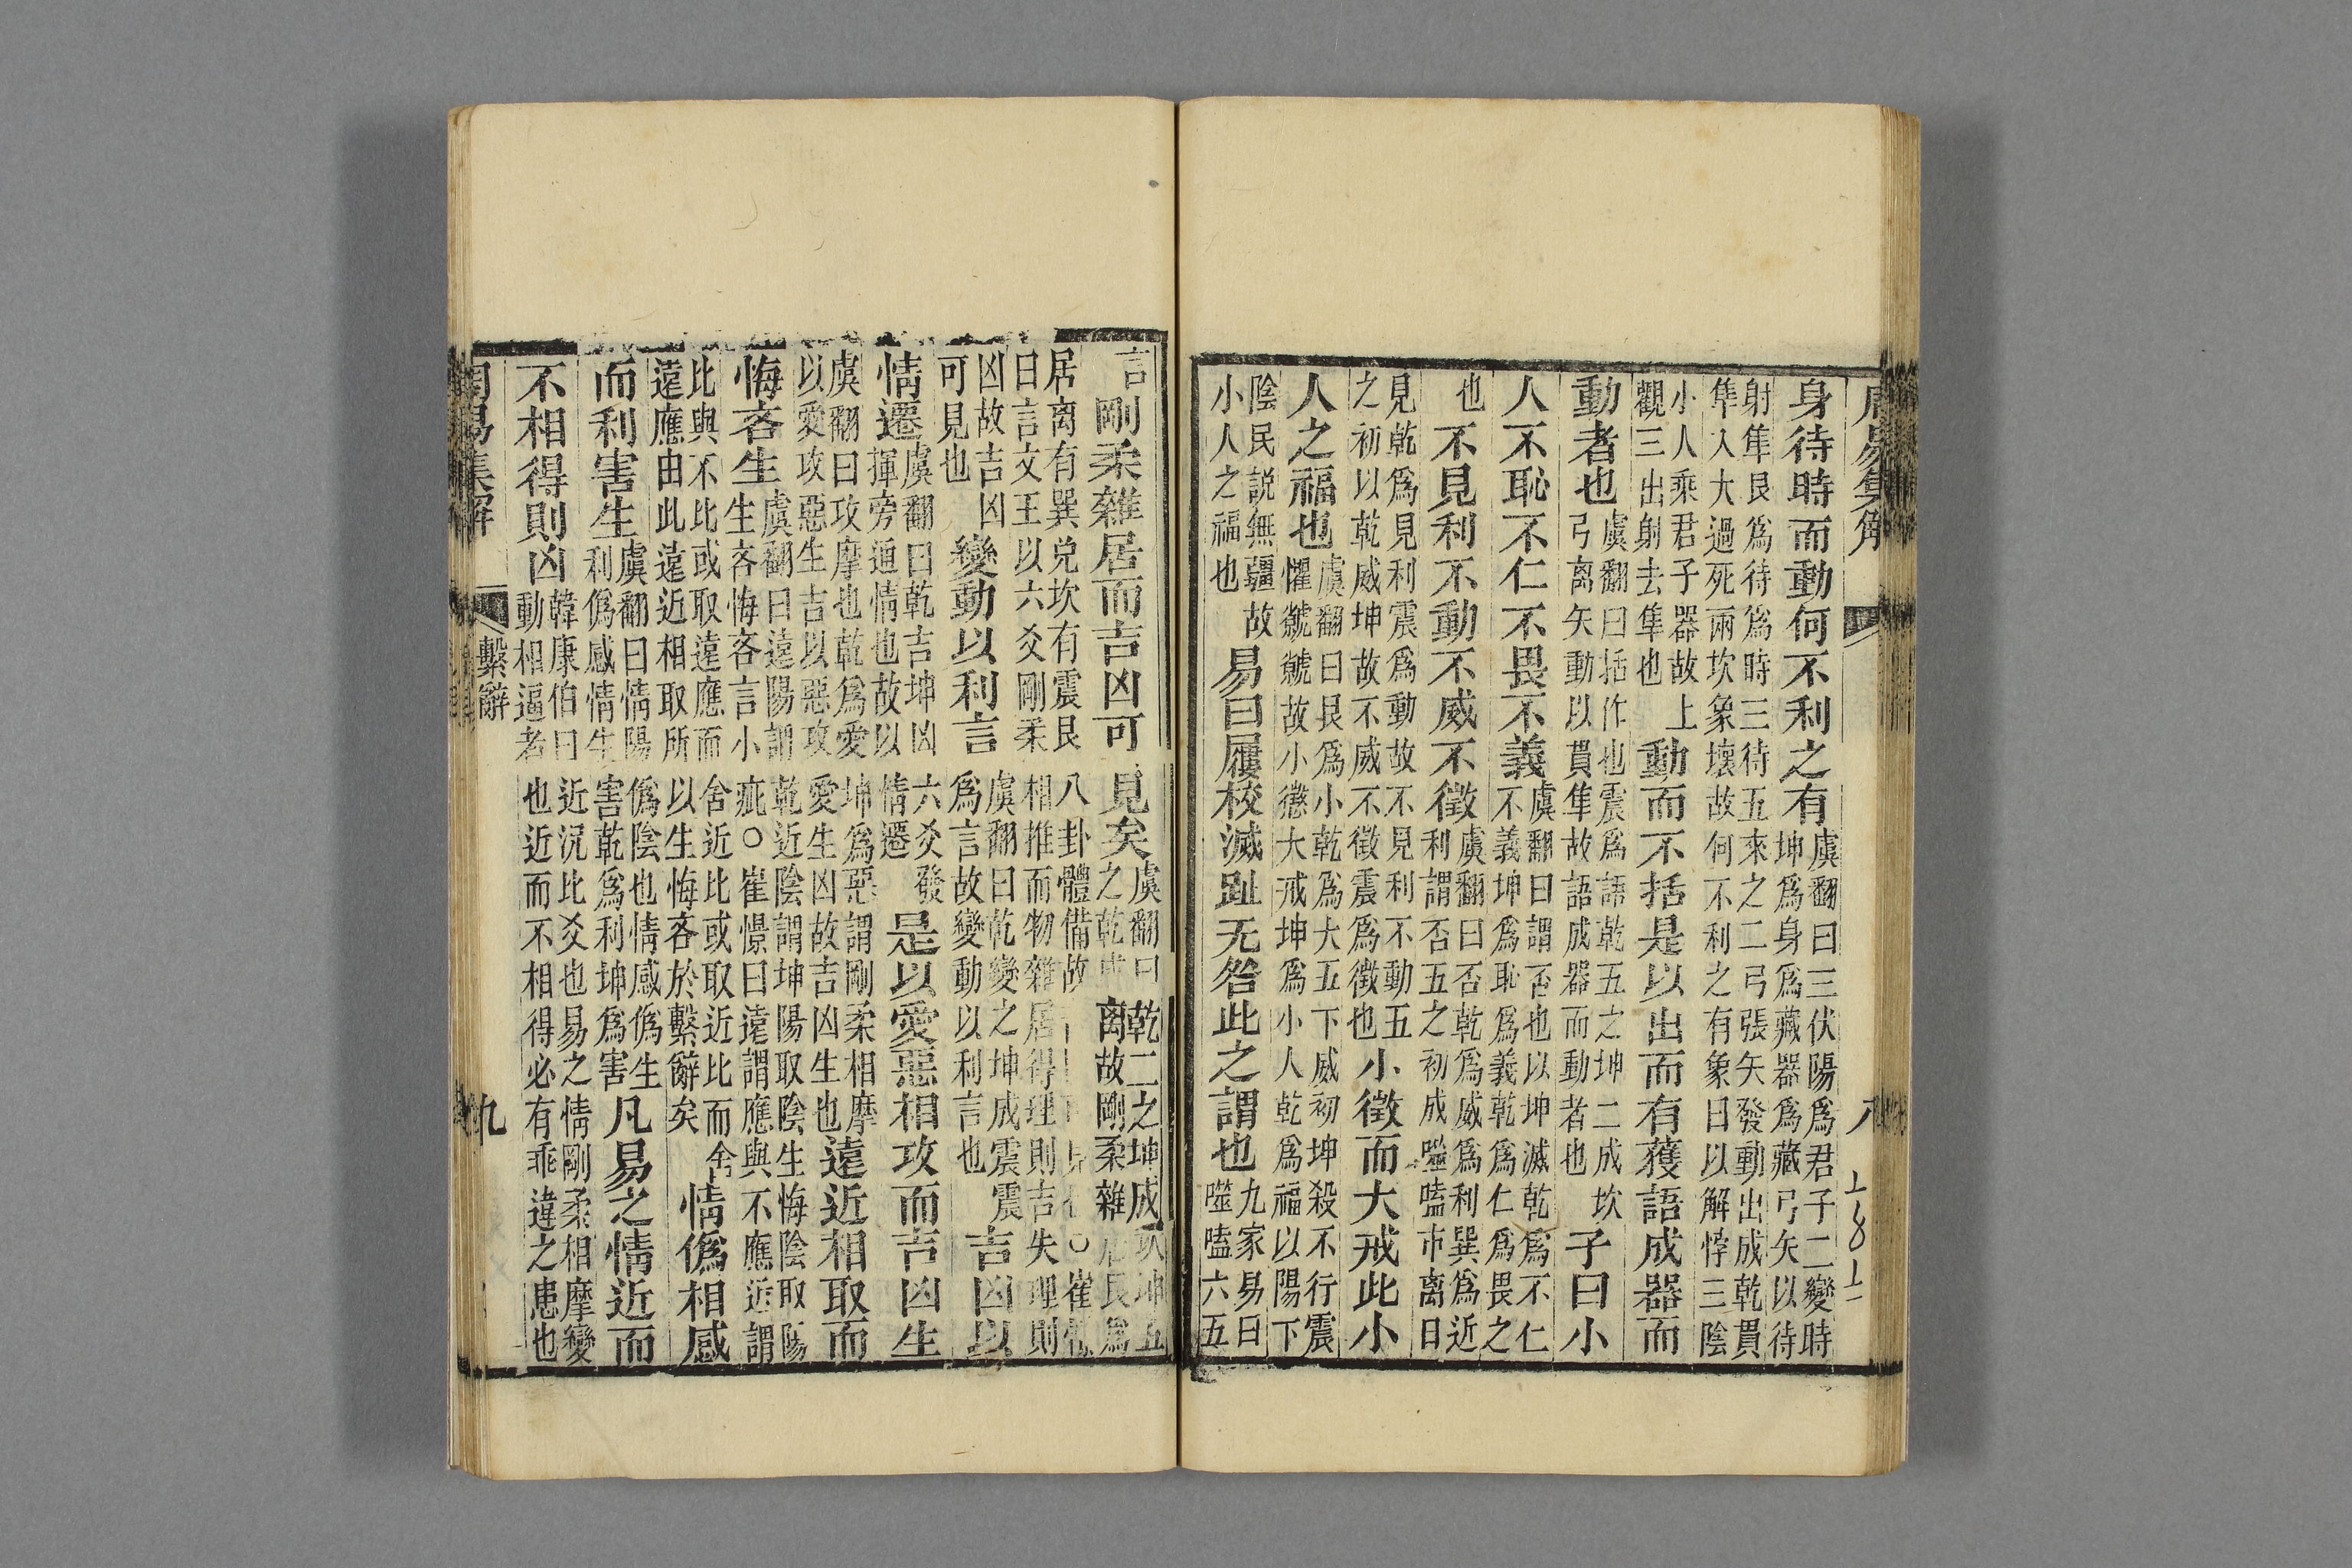 周易集解 八
身待時而動何不利之有虞翻曰三伏陽爲君子二變時坤爲身爲藏器爲藏弓矢以待
射隼艮爲待爲時三待五來之二弓張矢發動出成乾貫隼入大過死兩坎象壞故何不利之有象曰以解悖三陰
小人乘君子器故上觀三出射去隼也動而不括是以出而有獲語成器而
動者也虞翻曰括作也震爲語乾五之坤二成坎弓离矢動以貫隼故語成器而動者也子曰小
人不恥不仁不畏不義虞翻曰謂否也以坤滅乾爲不仁不義坤爲恥爲義乾爲仁爲畏之
也不見利不動不威不徵虞翻曰否乾爲威爲利巽爲近利謂否五之初成噬嗑市离日
見乾爲見利震爲動故不見利不動五之初以乾威坤故不威不徵震爲徵也小徵而大戒此小
人之福也虞翻曰艮爲小乾爲大五下威初坤殺不行震懼虩虩故小懲大戒坤爲小人乾爲福以陽下
陰民說無疆故小人之福也易曰屨校滅趾无咎此之謂也九家易曰噬嗑六五
言剛柔雜居而吉凶可見矣虞翻曰乾二之坤成坎坤五之乾成离故剛柔雜居艮爲
居离有巽兌坎有震艮八卦體備故○崔憬曰言文王以六爻剛柔相推而物雜居得理則吉失理則
凶故吉凶可見也變動以利言虞翻曰乾變之坤成震震爲言故變動以利言也吉凶以
情遷虞翻曰乾吉坤凶六爻發揮旁通情也故以情遷是以愛惡相攻而吉凶生
虞翻曰攻摩也乾爲愛坤爲惡謂剛柔相摩以愛攻惡生吉以惡攻愛生凶故吉凶生也遠近相取而
悔吝生虞翻曰遠陽謂乾近陰謂坤陽取陰生悔陰取陽生吝悔吝言小疵○崔憬曰遠謂應與不應近謂
比與不比或取遠應而舍近比或取近比而舍遠應由此遠近相取所以生悔吝於繫辭矣情僞相感
而利害生虞翻曰情陽僞陰也情感僞生利僞感情生害乾爲利坤爲害凡易之情近而
不相得則凶韓康伯曰近況比爻也易之情剛柔相摩變動相逼者也近而不相得必有乖違之患也
周易集解 繫辭 九